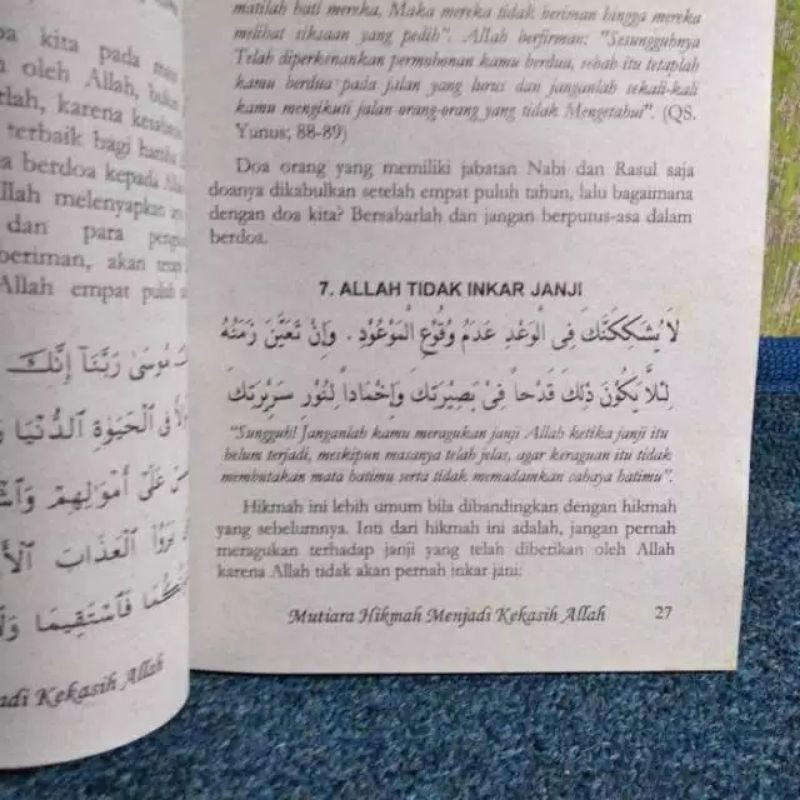 kita pada
oleh Allah, bukan
karena
terbaik bagi hamba
berdoa kepada Allah
melenyapkan
dan para
beriman, akan tetap
Allah empat puluh
مُوسَىٰ رَبَّنَآ إِنَّكَ
فِى الْحَيَوٰةِ الدُّنْيَا
عَلَىٰٓ أَمْوَالِهِمْ
يَرَوُا الْعَذَابَ
فَاسْتَقِيمَا
Kekasih Allah
matilah hati mereka, Maka mereka tidak beriman hingga mereka
melihat siksaan yang pedih". Allah berfirman: "Sesungguhnya
Telah diperkenankan permohonan kamu berdua, sebab itu tetaplah
kamu berdua pada jalan yang lurus dan janganlah sekali-kali
kamu mengikuti jalan orang-orang yang tidak Mengetahui". (QS.
Yunus; 88-89)
Doa orang yang memiliki jabatan Nabi dan Rasul saja
doanya dikabulkan setelah empat puluh tahun, lalu bagaimana
dengan doa kita? Bersabarlah dan jangan berputus-asa dalam
berdoa.
7. ALLAH TIDAK INKAR JANJI
لَا يُشَكِّكَنَّكَ فِى الْوَعْدِ عَدَمُ وُقُوْعِ الْمَوْعُوْدِ . وَإِنْ تَعَيَّنَ زَمَنُهُ
لِئَلَّا يَكُوْنَ ذٰلِكَ قَدْحاً فِىْ بَصِيْرَتِكَ وَإِخْمَاداً لِنُوْرِ سَرِيْرَتِكَ
"Sungguh! Janganlah kamu meragukan janji Allah ketika janji itu
belum terjadi, meskipun masanya telah jelas, agar keraguan itu tidak
membutakan mata batimu serta tidak memadamkan cahaya batimu".
Hikmah ini lebih umum bila dibandingkan dengan hikmah
yang sebelumnya. Inti dari hikmah ini adalah, jangan pernah
meragukan terhadap janji yang telah diberikan oleh Allah
karena Allah tidak akan pernah inkar jani:
Mutiara Hikmah Menjadi Kekasih Allah 27